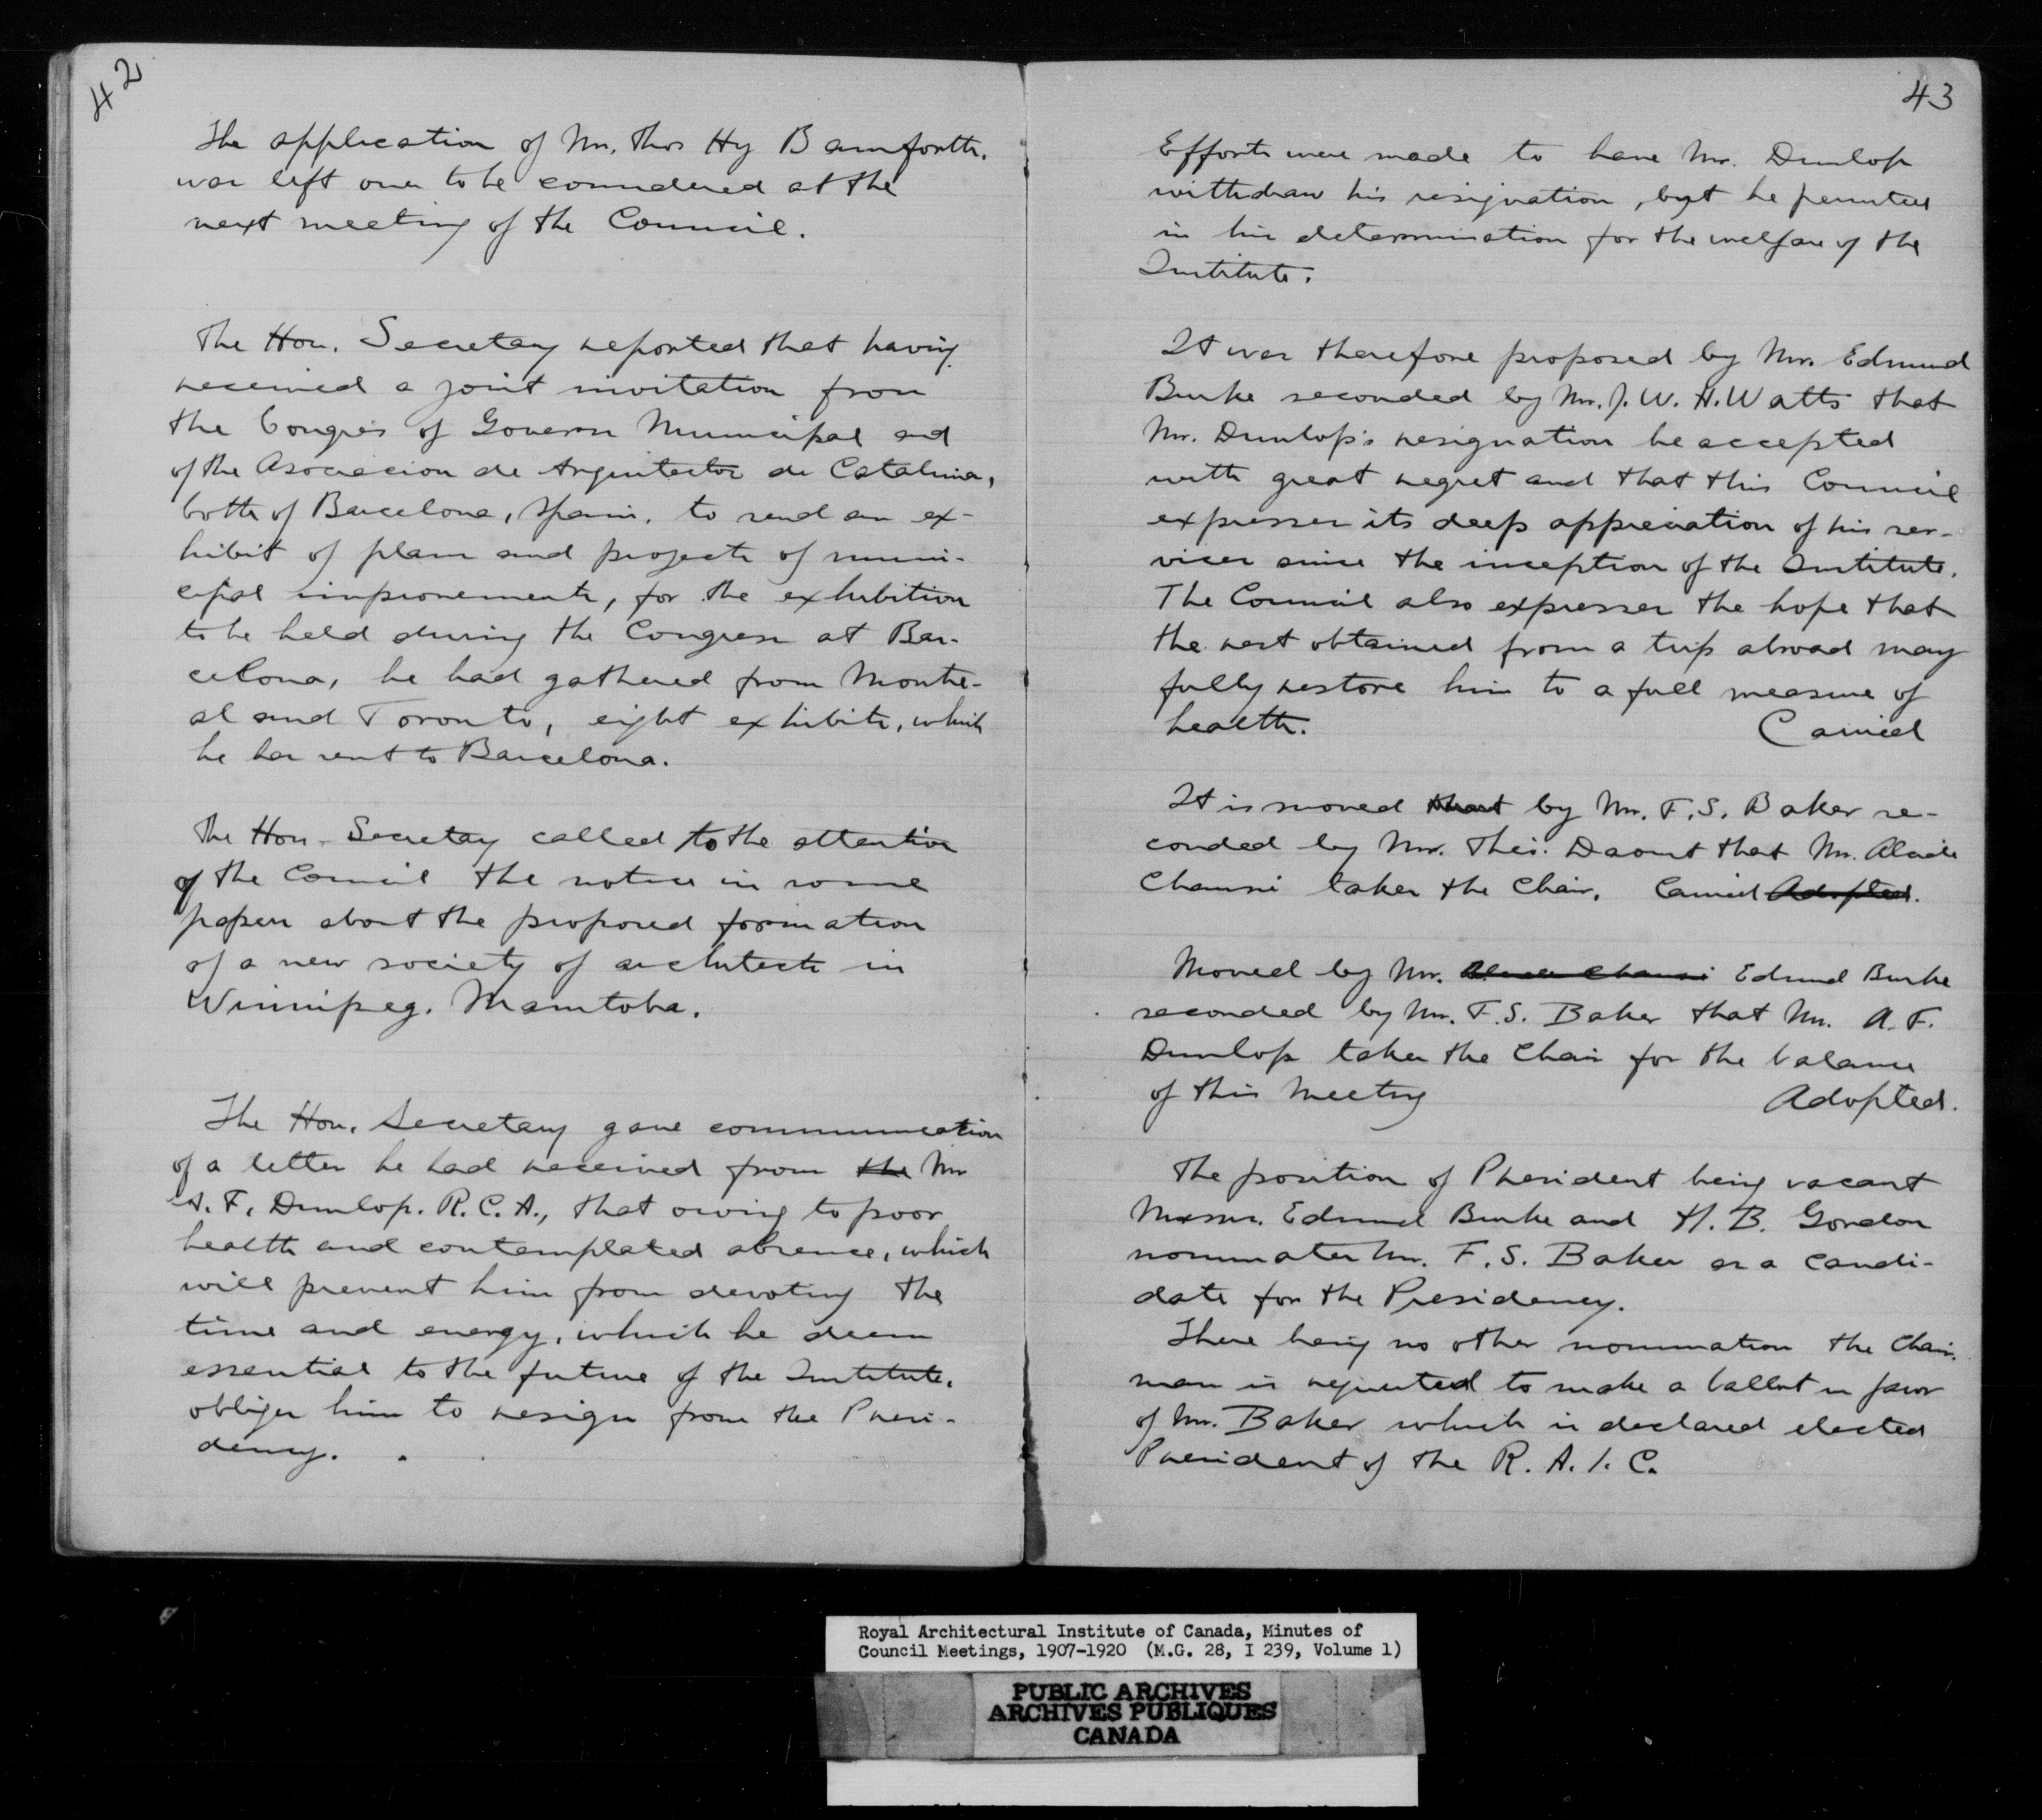 42
The application of Mr. Thos Hy Bamforth.
was left over to be considered at the
next meeting of the Council.
The Hon. Secretary reported that having
received a joint invitation from
the Congres of Govern Municipal and
of the Asociacion de Arquitectos de Cataluna,
both of Barcelona, Spain, to send an ex-
hibit of plans and projects of muni-
cipal improvements, for the exhibition
to be held during the Congress at Bar-
celona, he had gathered from Montre-
al and Toronto, eight exhibits, which
he has sent to Barcelona.
The Hon. Secretary called to the attention
of the Council the notice in some
papers about the proposed formation
of a new society of architects in
Winnipeg. Manitoba.
The Hon. Secretary gave communication
of a letter he had received from the Mr
A. F. Dunlop. R. C. A., that owing to poor
health and contemplated absence, which
will prevent him from devoting the
time and energy, which he deems
essential to the future of the Institute,
obliges him to resign from the Presi-
dency.
43
Efforts were made to have Mr. Dunlop
withdraw his resignation, but he persisted
in his determination for the welfare of the
Institute.
It was therefore proposed by Mr. Edmund
Burke seconded by Mr. J. W. H. Watts that
Mr. Dunlop's resignation be accepted
with great regret and that this Council
expresses its deep appreciation of his ser-
vices since the inception of the Institute.
The Council also expresses the hope that
the rest obtained from a trip abroad may
fully restore him to a full measure of
health. Carried
It is moved that by Mr. F. S. Baker se-
conded by Mr. Thés. Daoust that Mr. Alcide
Chaussé takes the Chair. Carried Adopted.
Moved by Mr. Alcide Chaussé Edmund Burke
seconded by Mr. F. S. Baker that Mr. A. F.
Dunlop takes the Chair for the balance
of this Meeting Adopted.
The position of President being vacant
Messrs. Edmund Burke and H. B. Gordon
nominates Mr. F. S. Baker as a candi-
date for the Presidency.
There being no other nomination the Chair-
man is requested to make a ballot in favor
of Mr. Baker which is declared elected
President of the R. A. I. C.
Royal Architectural Institute of Canada, Minutes of
Council Meetings, 1907-1920 (M.G. 28, I 239, Volume 1)
PUBLIC ARCHIVES
ARCHIVES PUBLIQUES
CANADA